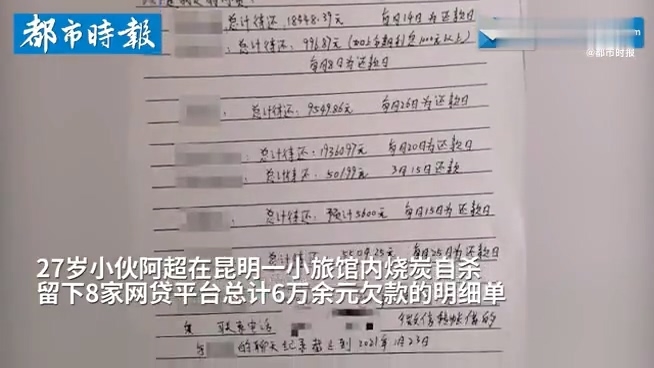 都市時報
@都市时报
总计待还：18548.39元 每月14日为还款日
总计待还：996.87元(加上本期利息1000元以上)
每月8日为还款日
总计待还：9549.86元 每月26日为还款日
总计待还：19360.97元 每月20日为还款日
总计待还：501.99元 3月15日还款
总计待还：预计5600元 每月15日为还款日
总计待还：5509.25元 每月25日为还款日
27岁小伙阿超在昆明一小旅馆内烧炭自杀
留下8家网贷平台总计6万余元欠款的明细单
联系电话
的聊天记录截止到2021年1月23日